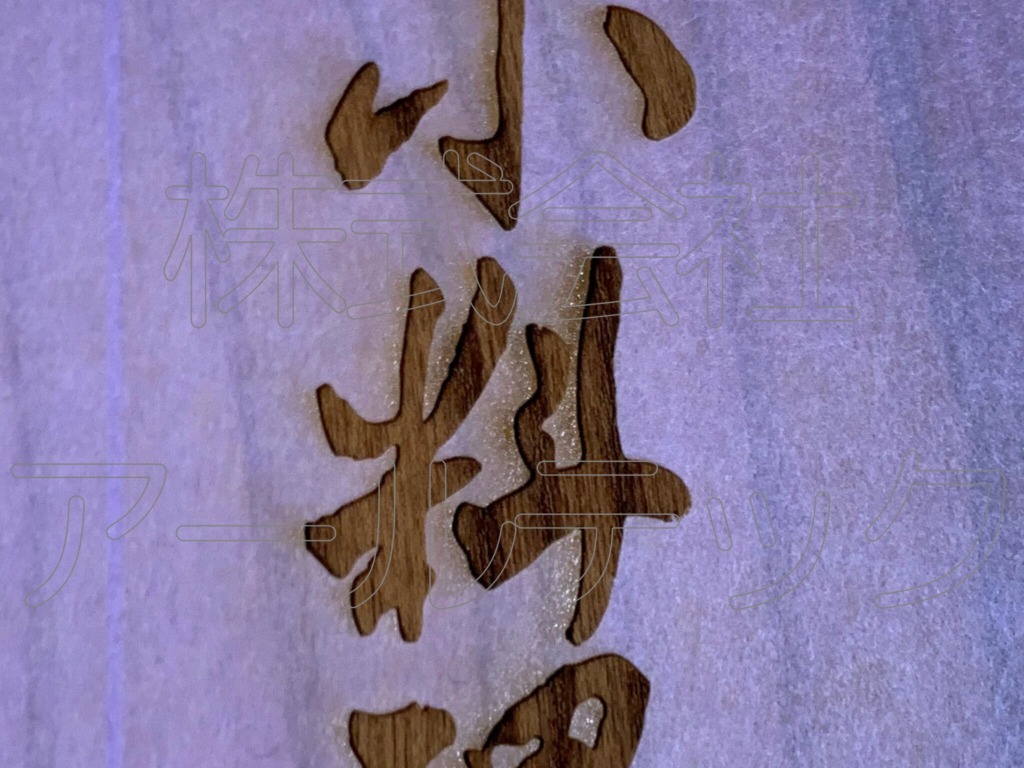 小料理
株式会社
アールテック